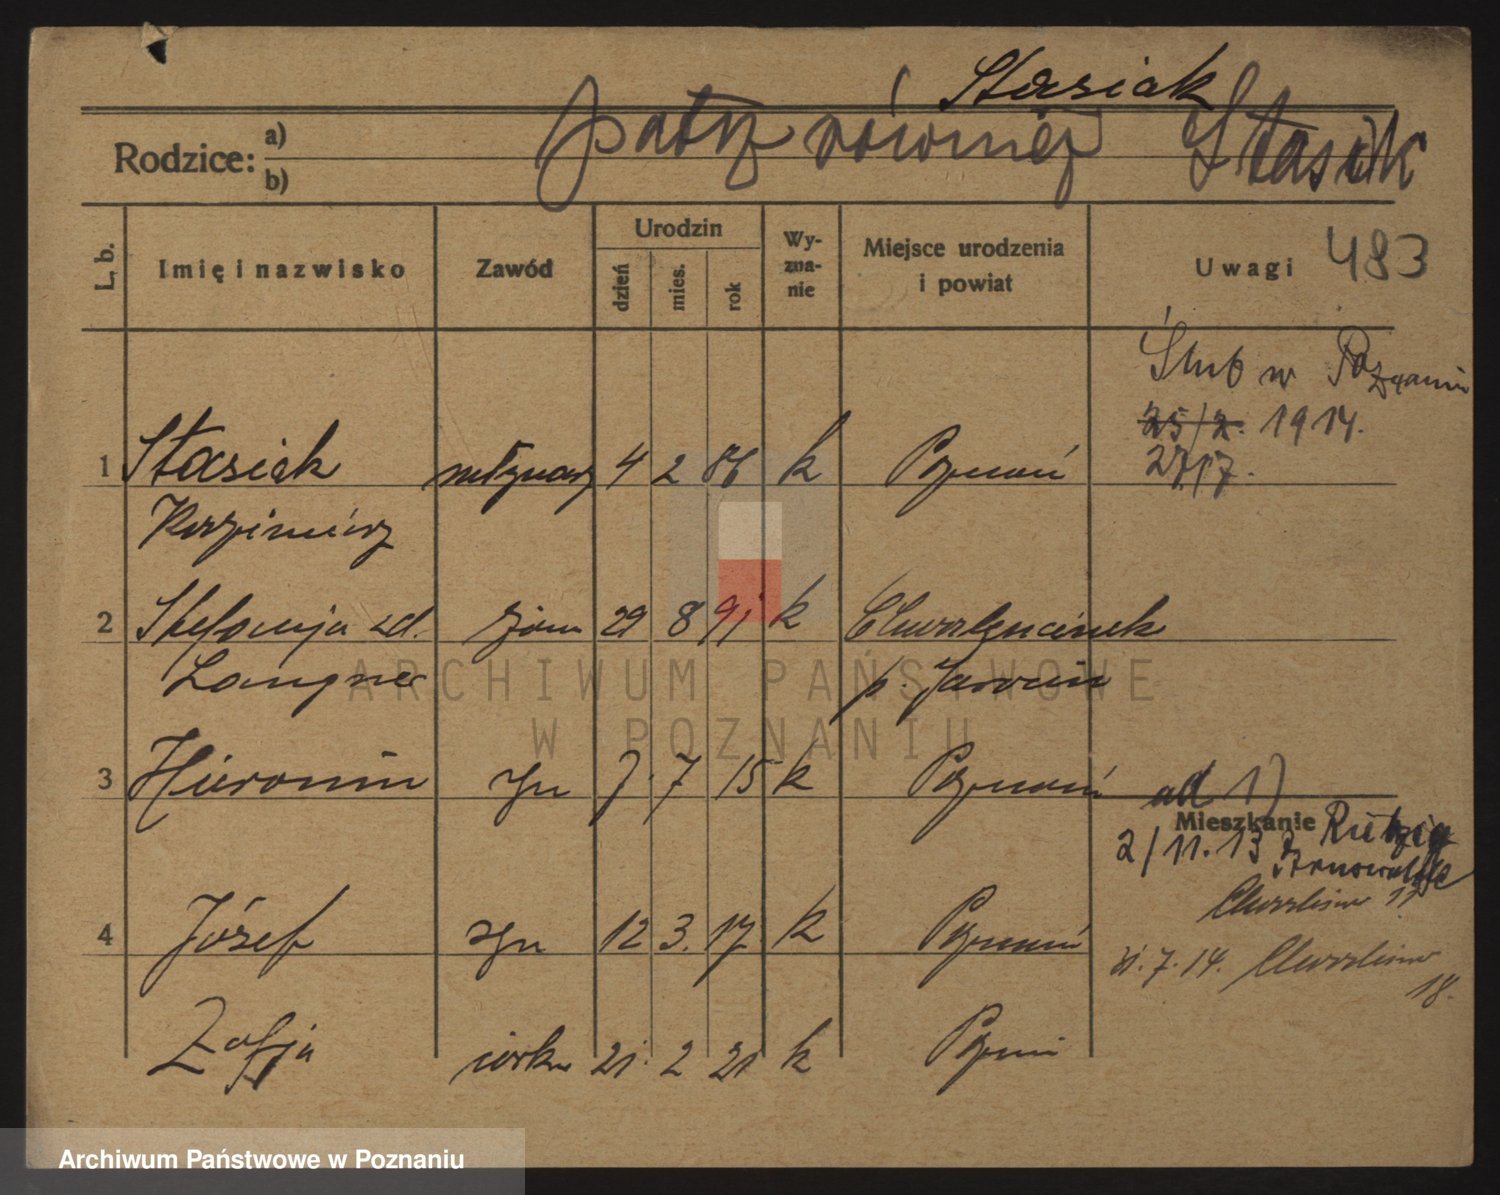 Stasiak
patrz również Stasik
Rodzice: a)
b)
L. b.
Imię i nazwisko
Zawód
Urodzin
dzień
mies.
rok
Wy-
zna-
nie
Miejsce urodzenia
i powiat
Uwagi
483
Ślub w Poznaniu
25/2. 1914.
27/7.
1 Stasiak młynarz 4 2 86 k Poznań
Kazimierz
2 Stefanja zd. żona 29 8 91 k Chwalęcinek
p. Jarocin
3 Hieronim syn 7. 7 15 k Poznań
ad 1)
Mieszkanie
2/11. 13
4 Józef syn 12 3. 17. k Poznań
31. 7. 14.
18.
Zofja córka 21. 2 21 k Poznań
ARCHIWUM PAŃSTWOWE
W POZNANIU
Archiwum Państwowe w Poznaniu